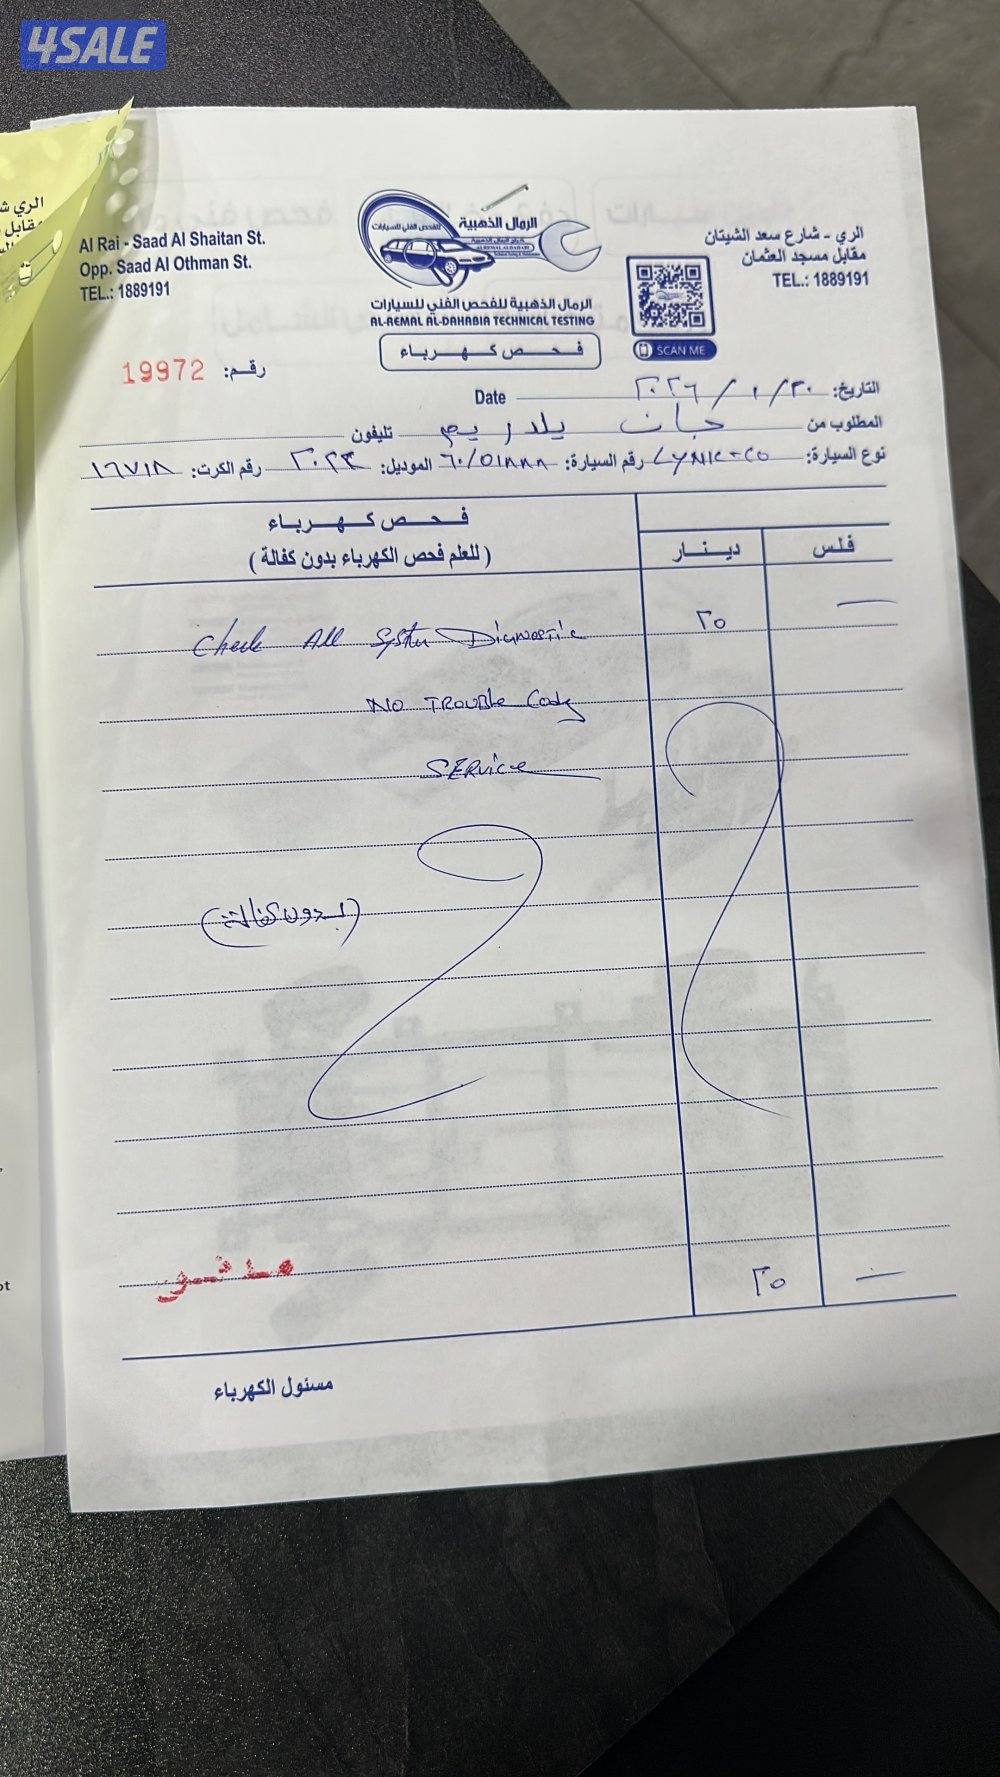 4SALE
Al Rai - Saad Al Shaitan St.
Opp. Saad Al Othman St.
TEL.: 1889191
الرمال الذهبية
للفحص الفني للسيارات
الرمال الذهبية للفحص الفني للسيارات
AL-REMAL AL-DAHABIA TECHNICAL TESTING
فحص كهرباء
الري - شارع سعد الشيتان
مقابل مسجد العثمان
TEL.: 1889191
SCAN ME
رقم: 19972
Date التاريخ: ٢٠٢٦/١/٣٠
المطلوب من جان يلدريم تليفون
نوع السيارة: LYNK-CO رقم السيارة: ٦٠/٥١٨٨٨ الموديل: ٢٠٢٣ رقم الكرت: ١٦٧١٨
فحص كهرباء
(للعلم فحص الكهرباء بدون كفالة)
دينار فلس
Check All System Diagnostic ٢٥ —
NO TROUBLE Code
SERVICE
(بدون كفالة)
مدفوع
٢٥ —
مسئول الكهرباء